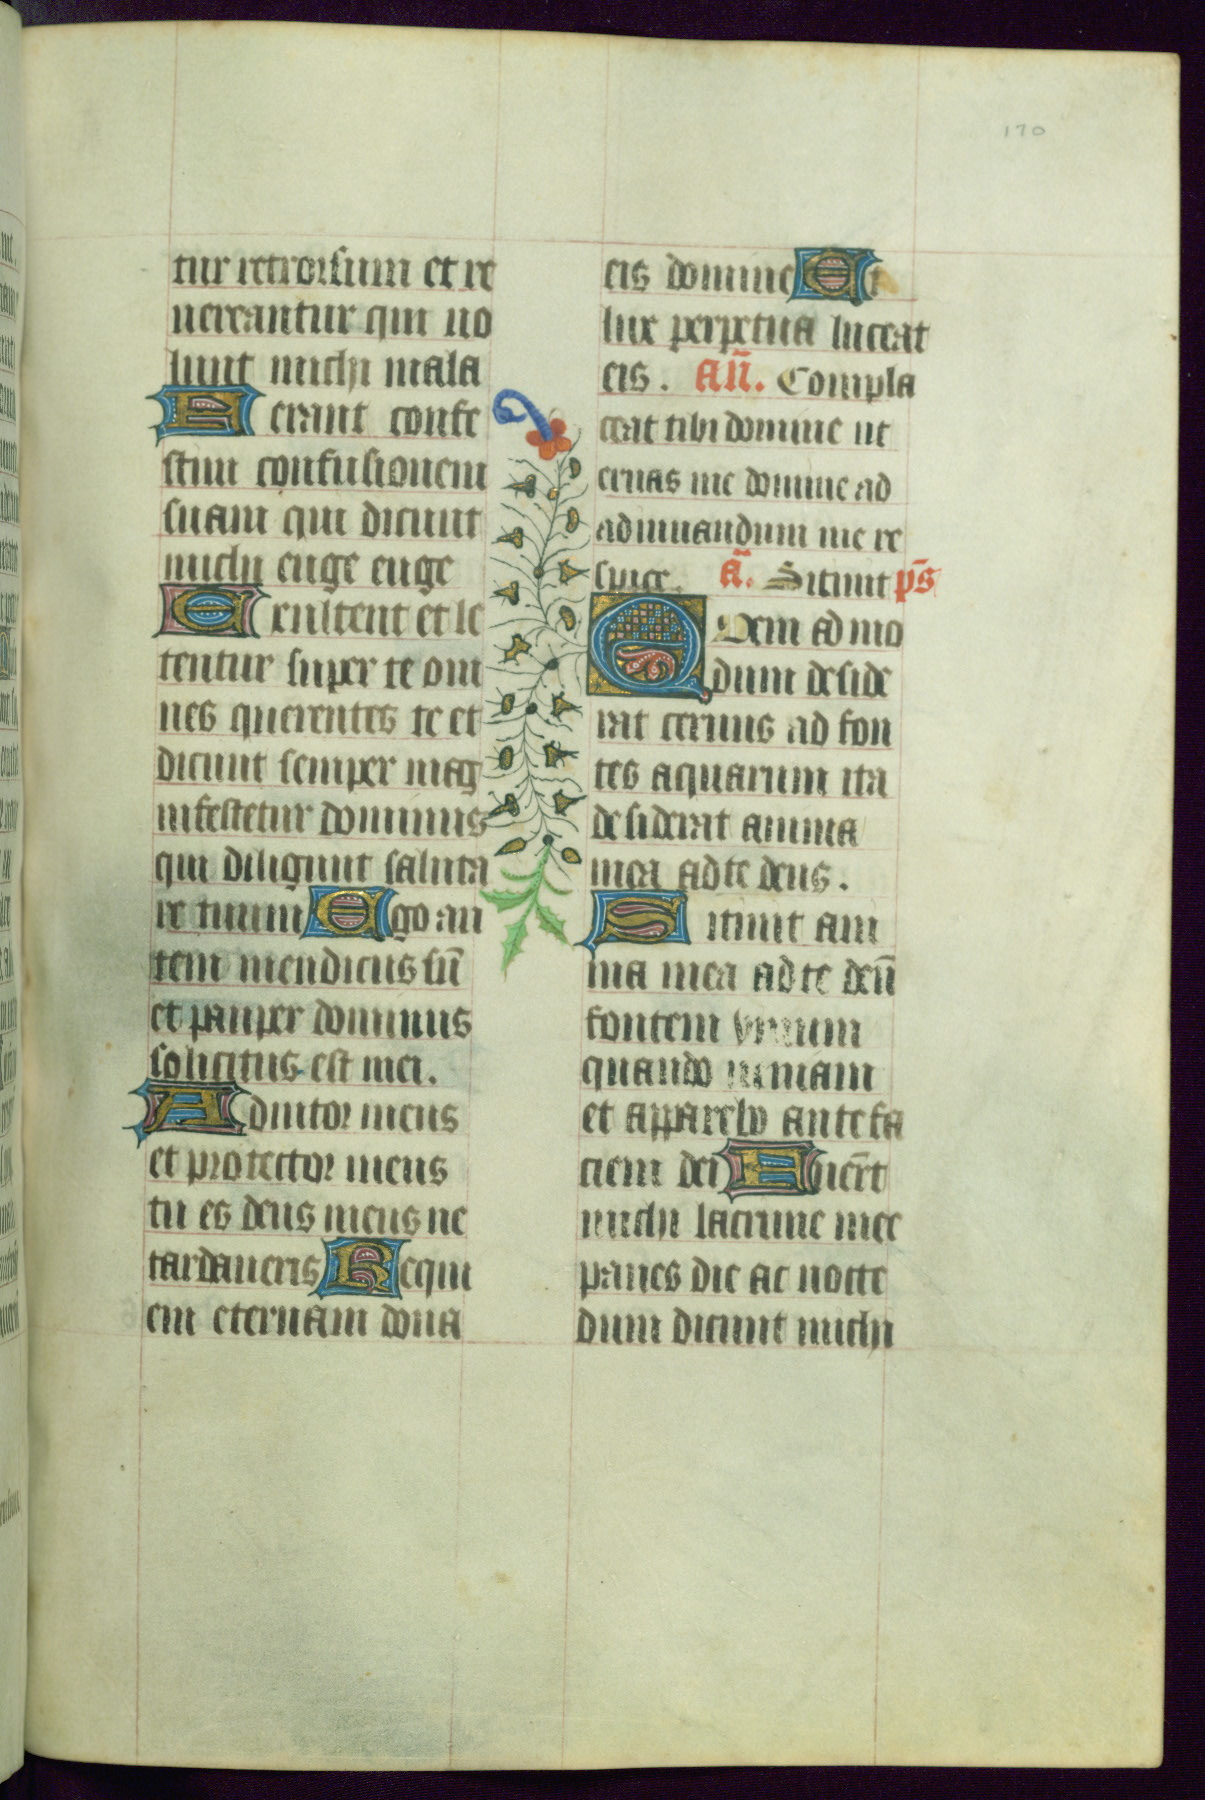 170
tur retrorsum et re
uereantur qui uo
lunt michi mala
Ferant confe
stim confusionem
suam qui dicunt
michi euge euge
Exultent et le
tentur super te om
nes querentes te et
dicunt semper mag
nifestetur dominus
qui diligunt saluta
re tuum Ego au
tem mendicus sū
et pauper dominus
solicitus est mei.
Adiutor meus
et protector meus
tu es deus meus ne
tardaueris Requi
em eternam dona
eis domine Et
lux perpetua luceat
eis. Añ. Compla
ceat tibi domine ut
eruas me domine ad
adiuuandum me re
spice. Ā. Sitiuit p̄s
Quem ad mo
dum deside
rat ceruus ad fon
tes aquarum ita
desiderat anima
mea ad te deus.
Sitiuit ani
ma mea ad te deū
fontem viuum
quando ueniam
et apparebo ante fa
ciem dei Fuerūt
michi lacrime mee
panes die ac nocte
dum dicunt michi